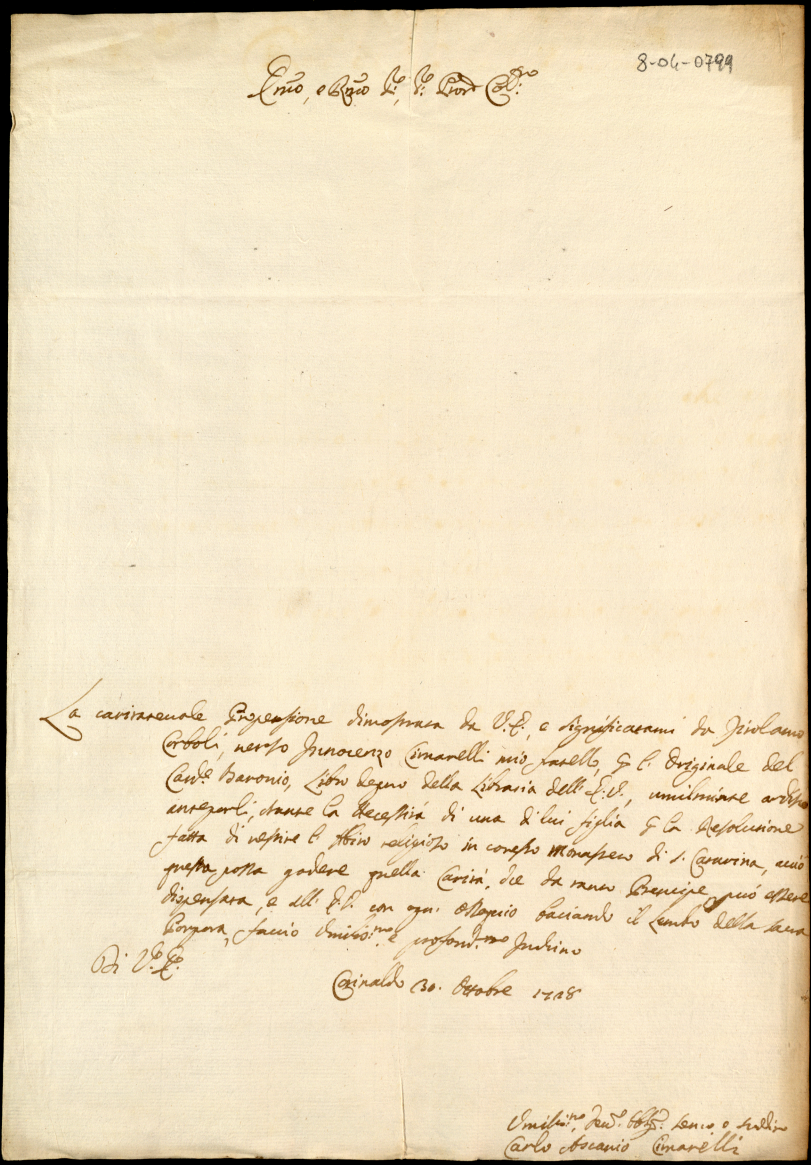 8-04-0799
Emo, e Rmo Sre, Sre Prone Colmo
La caritatevole Propensione dimostrata da V.E., e significatami da Girolamo
Corboli, verso Innocenzo Cimarelli mio fratello, p l'Originale del
Carde Baronio, Libro degno della Libraria dell'E.V., umilmente ardisco
anteporli, stante la Necessità di una di lui figlia p la Resoluzione
fatta di vestire l'Abito religioso in cotesto Monastero di S. Catarina, acciò
questa possa godere quella Carità, che da tanto Prencipe può essere
dispensata, e all'E.V. con ogni Ossequio baciando il Lembo della sacra
Porpora, faccio Umilissimo, e profondmo Inchino
Di V.E.
Corinaldo 30. Ottobre 1728
Umilissimo, Devmo Obblmo Servo, e Suddito
Carlo Ascanio Cimarelli